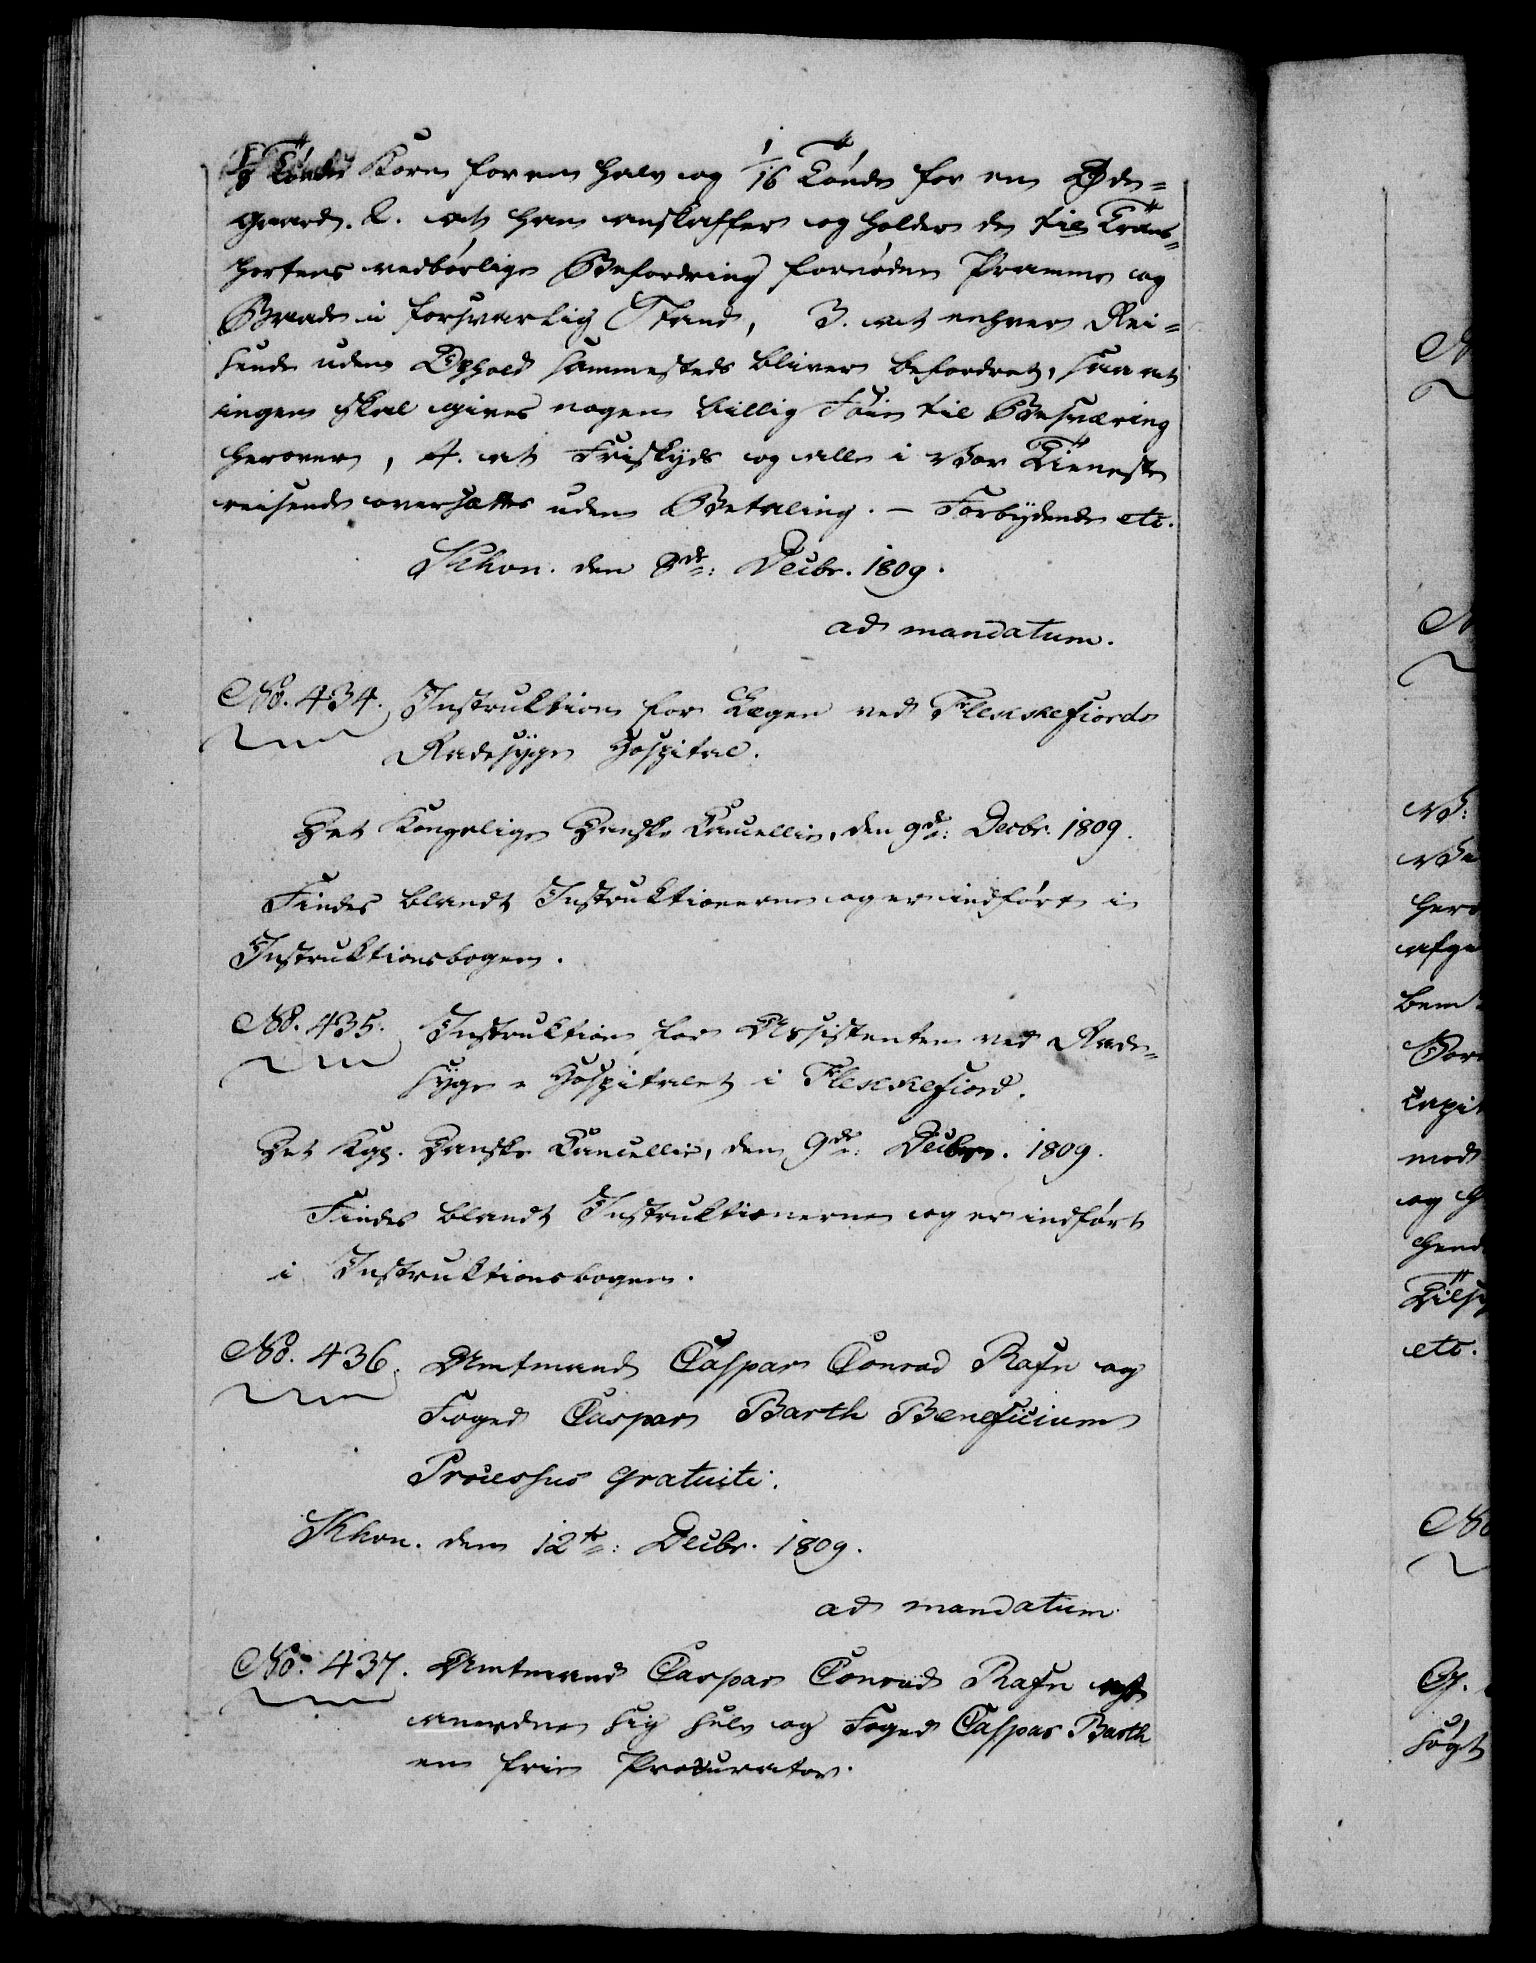 Tønde Korn for en halv og 1/16 Tønde for en Øde=
gaard. 2. at han anskaffer og holder de til Trans=
portens vedbørlige Befordring fornødne Pramme og
Baade i forsvarlig Stand, 3. at enhver Rei=
sende uden Ophold sammesteds bliver befordret, saa at
ingen skal gives nogen billig Føie til Besværing
herover, 4. at Friskyds og alle i Vor Tieneste
reisende oversættes uden Betaling. – Forbydende etc.
Khvn. den 8de: Decbr. 1809.
ad mandatum.
No. 434. Instruktion for Lægen ved Fleckefiords
Radesyge Hospital.
Det Kongelige Danske Cancellie, den 9de: Decbr. 1809.
Findes blandt Instruktionerne og er indført i
Instruktionsbogen.
No. 435. Instruktion for Assistenten ved Rade=
syge = Hospitalet i Fleckefiord.
Det Kgl. Danske Cancellie, den 9de: Decbr. 1809.
Findes blandt Instruktionerne og er indført
i Instruktionsbogen.
No. 436. Amtmand Caspar Conrad Rafn og
Foged Caspar Barth Beneficium
Processus gratuiti.
Khvn. den 12te: Decbr. 1809.
ad mandatum
No. 437. Amtmand Caspar Conrad Rafn at
anordne sig selv og Foged Caspar Barth
en frie Procurator.